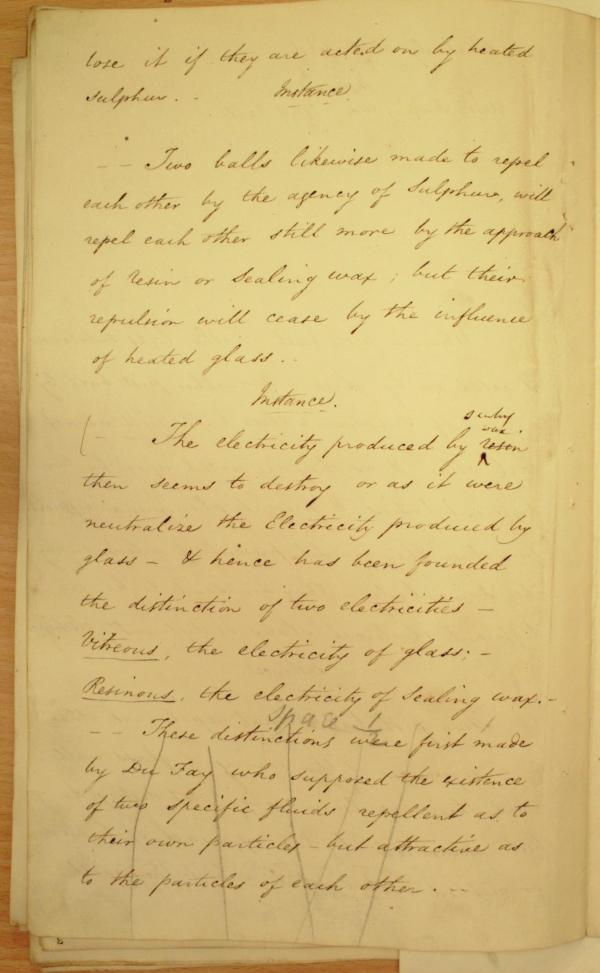 lose it if they are acted on by heated
sulphur. - Instance
- - Two balls likewise made to repel
each other by the agency of Sulphur, will
repel each other still more by the approach
of resin or Sealing wax; but their
repulsion will cease by the influence
of heated glass. -
Instance.
- The electricity produced by resin
wax
then seems to destroy or as it were
neutralize the Electricity produced by
glass - & hence has been founded
the distinction of two electricities -
Vitreous, the electricity of glass; -
Resinous, the electricity of Sealing wax. -
Space 1/2
- - These distinctions were first made
by Du Fay who supposed the existence
of two specific fluids repellent as to
their own particles - but attractive as
to the particles of each other. - -